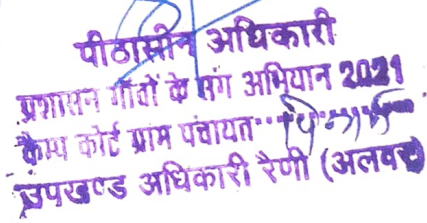 पीठासीन अधिकारी
प्रशासन गाँवों के संग अभियान 2021
कैम्प कोर्ट ग्राम पंचायत
उपखण्ड अधिकारी रैणी (अलवर)